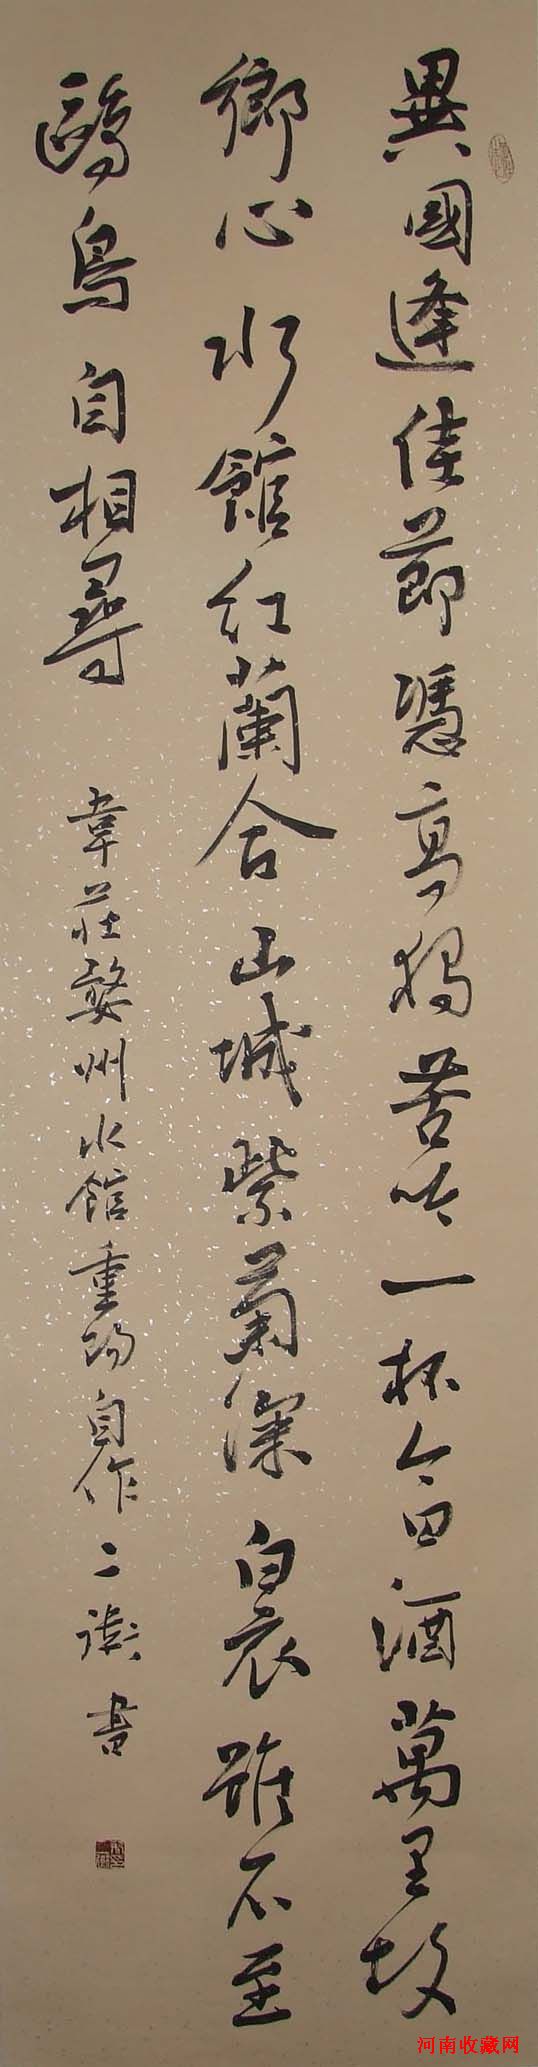 異國逢佳節憑高獨苦吟一杯今日酒萬里故
鄉心水館紅蘭合山城紫菊深白衣雖不至
鷗鳥自相尋
韋莊婺州水館重陽日作二書
河南收藏网